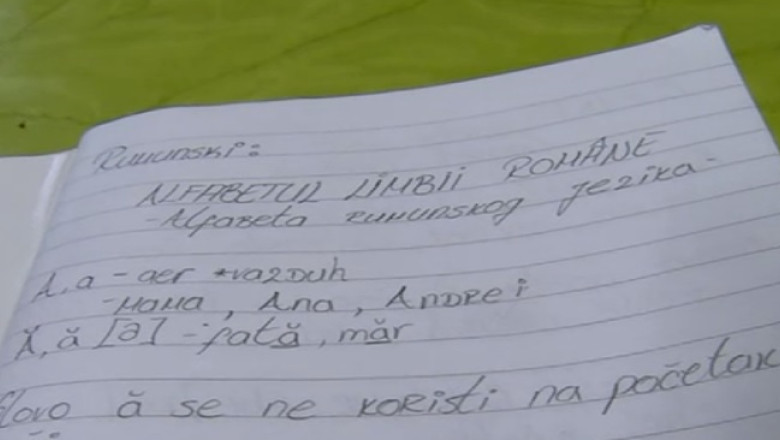 Rumunski:
ALFABETUL LIMBII ROMÂNE
-Alfabeta rumunskog jezika-
A,a - aer *vazduh
-mama, Ana, Andrei
Ă,ă [ə] - fată, măr
Slovo ă se ne koristi na početak